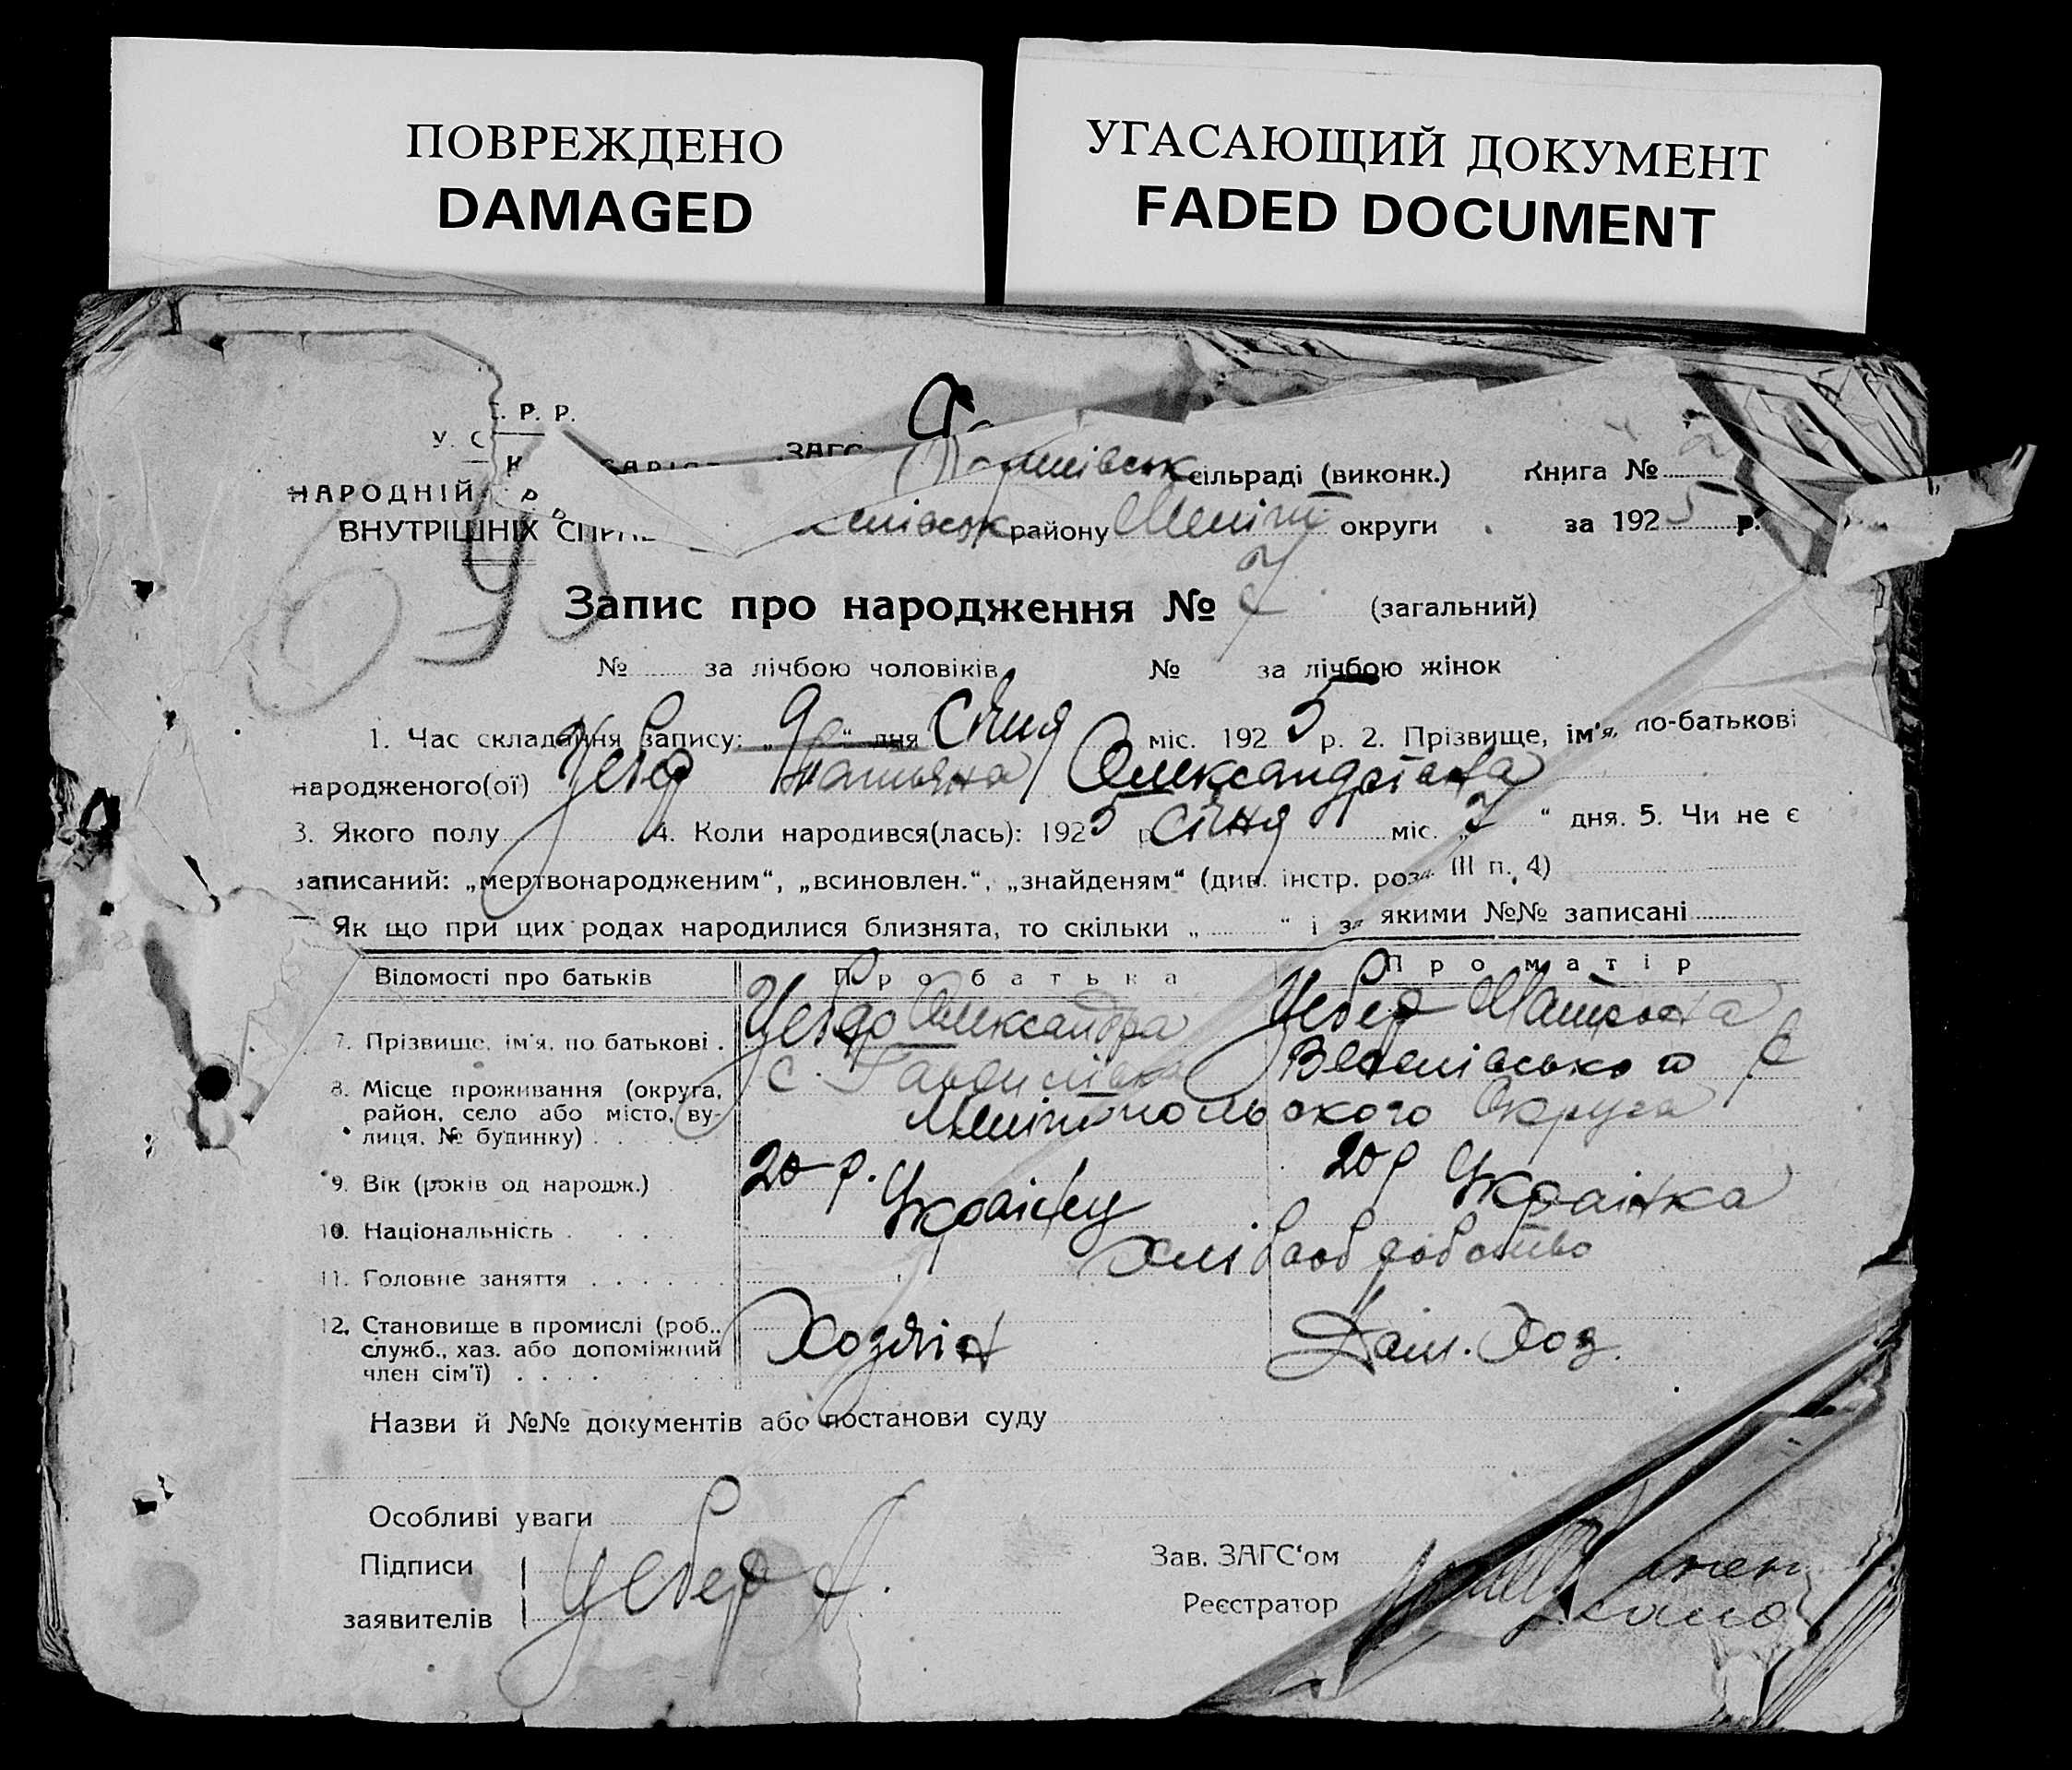 ПОВРЕЖДЕНО
DAMAGED
УГАСАЮЩИЙ ДОКУМЕНТ
FADED DOCUMENT
Р. Р.
У. С
ЗАГС
сільраді (виконк.) Книга №
НАРОДНІЙ
ВНУТРІШНІХ району Меліт округи за 1925 р.
Запис про народження № 7 (загальний)
№ за лічбою чоловіків № за лічбою жінок
1. Час складання запису: „9“ дня Січня міс. 1925 р. 2. Прізвище, ім'я, по-батькові
народженого(ої) Цебер Татьяна Олександрівна
3. Якого полу 4. Коли народився(лась): 1925 р Січня міс. „7“ дня. 5. Чи не є
записаний: „мертвонародженим“, „всиновлен.“, „знайденям“ (див. інстр. розд. III п. 4)
Як що при цих родах народилися близнята, то скільки „ “ і за якими №№ записані
Відомості про батьків Про батька Про матір
7. Прізвище, ім'я, по батькові Олександра Цебер Матрона
8. Місце проживання (округа, район, село або місто, вулиця, № будинку) с. Веселівського р
Мелітопольского Округа
9. Вік (років од народж.) 20 р. 20 р
10. Національність Українец Українка
11. Головне заняття Хліборобство
12. Становище в промислі (роб., служб., хаз. або допоміжний член сім'ї) Хозяін Дом. Хоз.
Назви й №№ документів або постанови суду
Особливі уваги
Підписи заявителів Цебер А.
Зав. ЗАГС'ом
Реєстратор